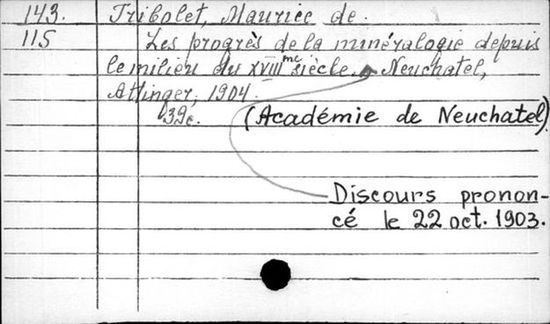 143. Tribolet, Maurice de.
115 Les progrès de la minéralogie depuis
le milieu du XVIIIme siècle. Neuchatel,
Attinger, 1904.
39c. (Académie de Neuchatel)
Discours pronon-
cé le 22 oct. 1903.